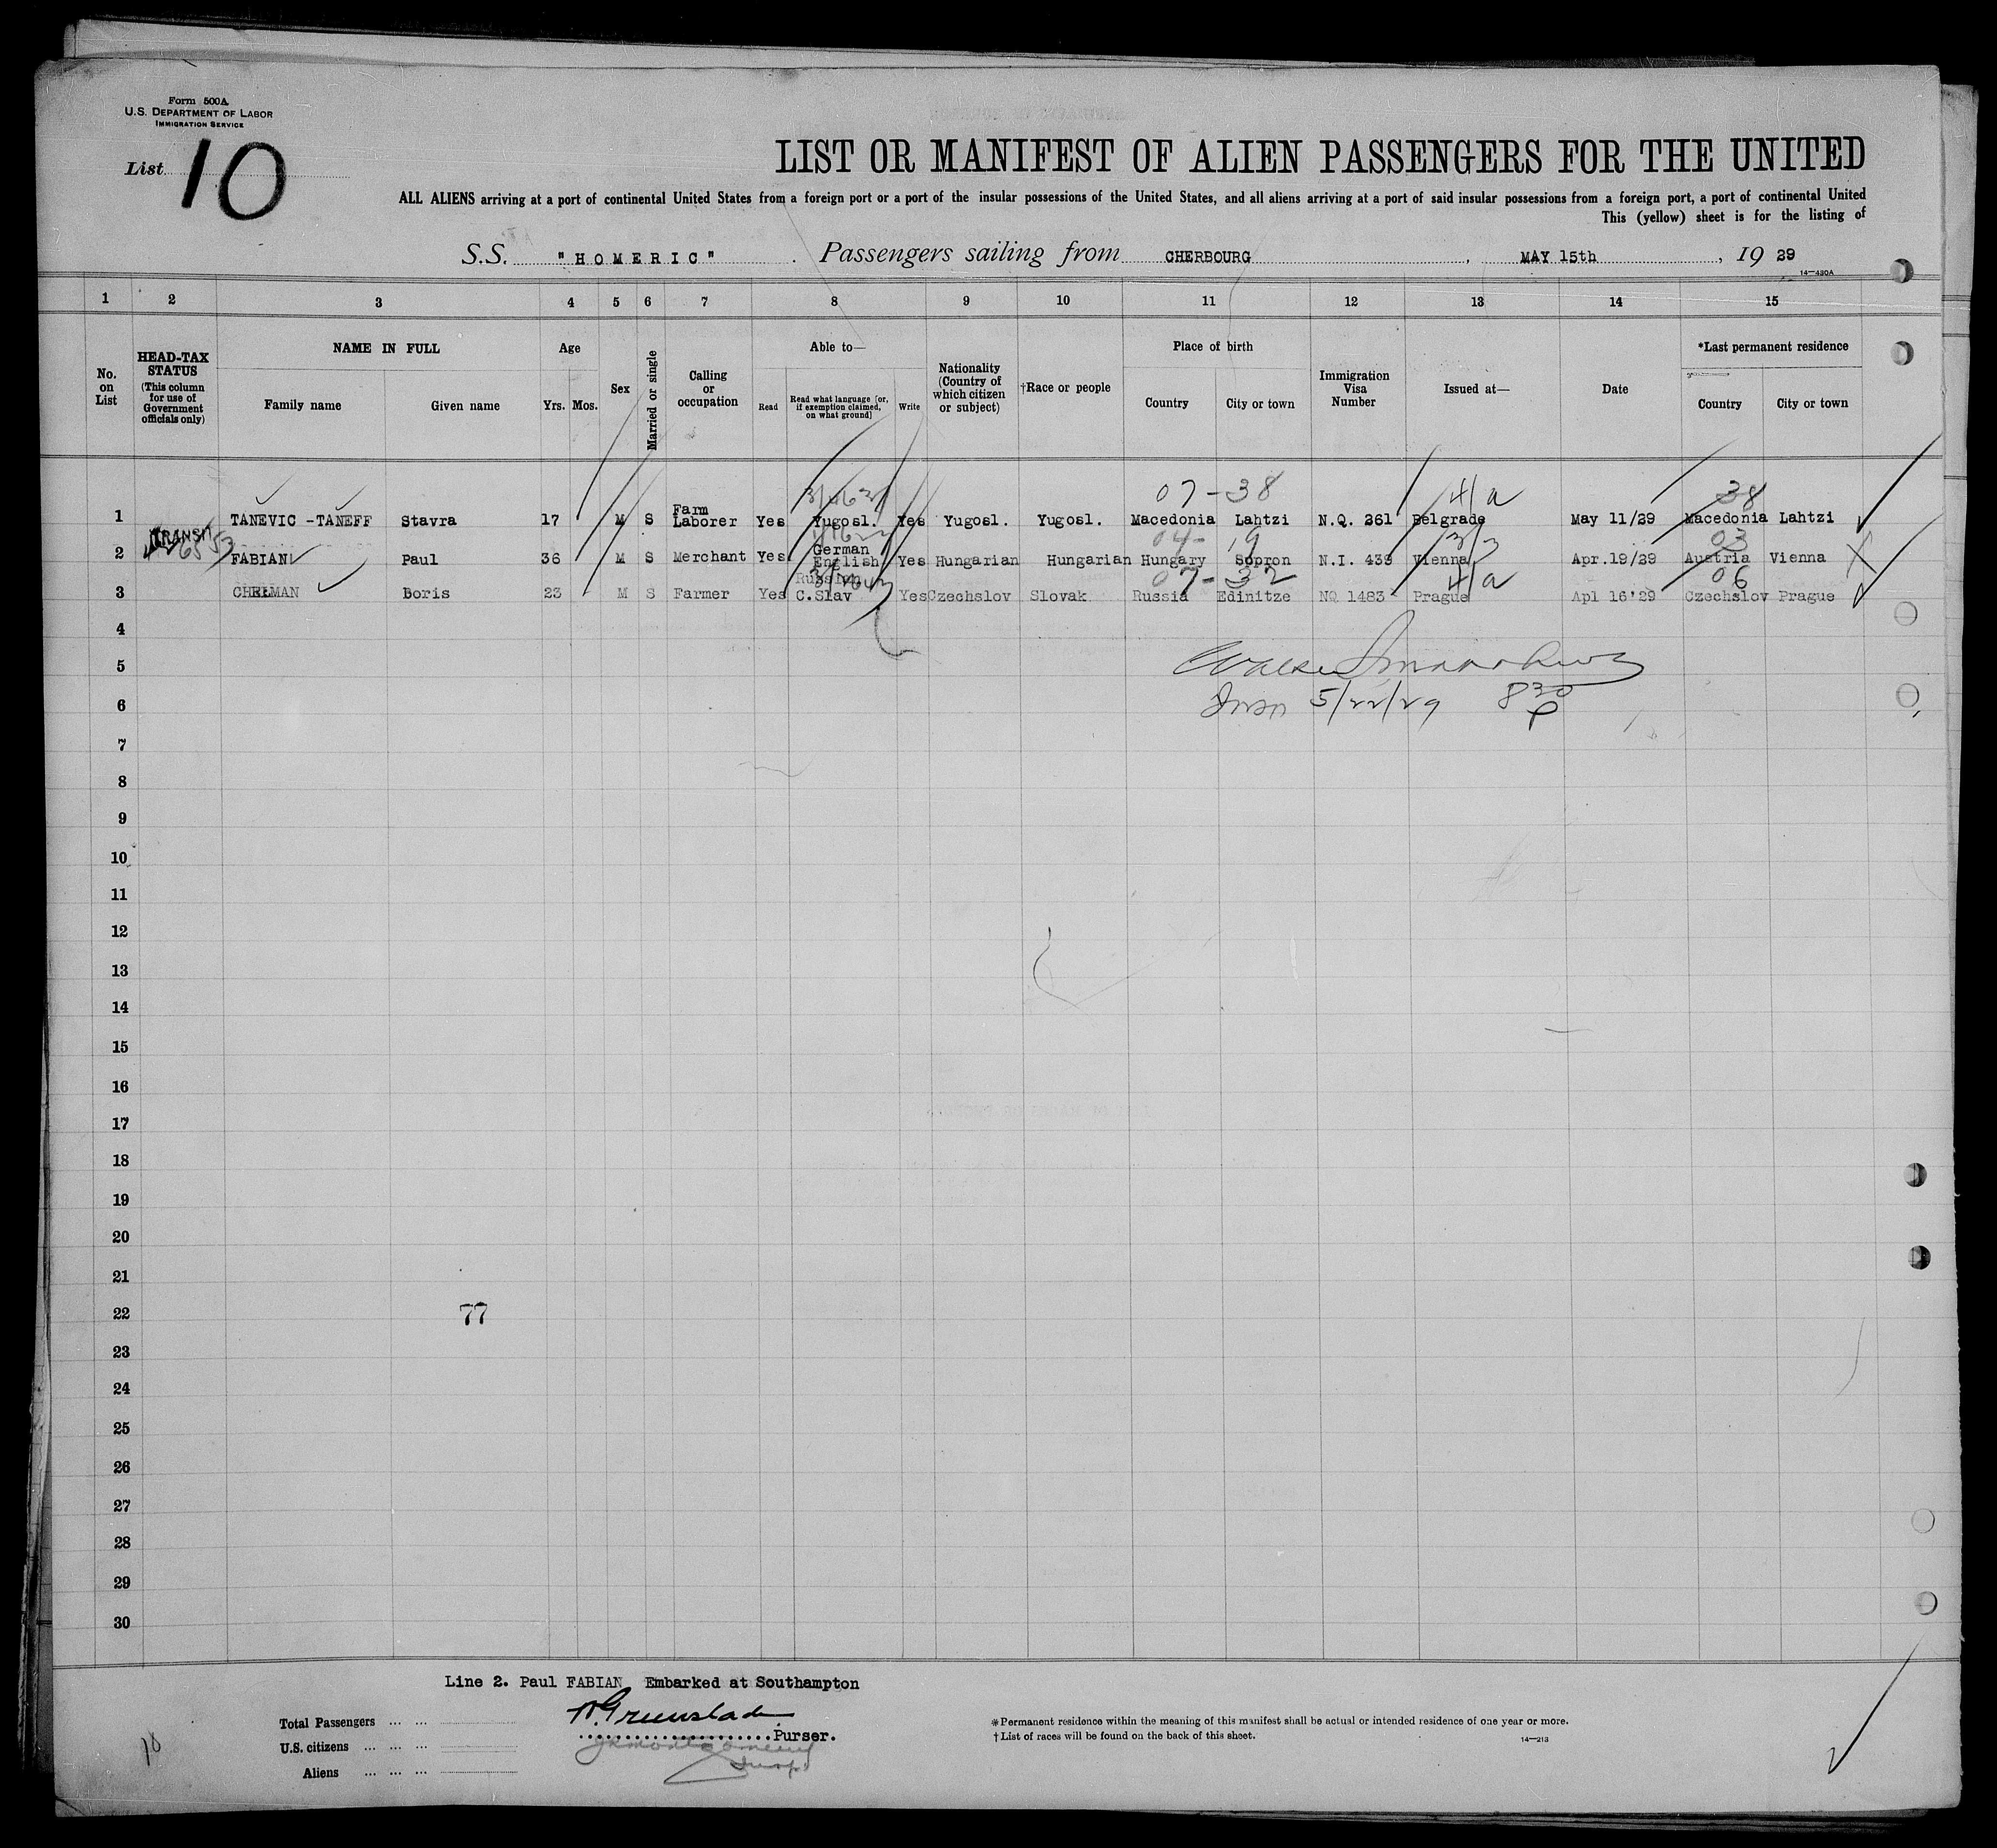 Form 500A
U.S. DEPARTMENT OF LABOR
IMMIGRATION SERVICE
List 10
LIST OR MANIFEST OF ALIEN PASSENGERS FOR THE UNITED
ALL ALIENS arriving at a port of continental United States from a foreign port or a port of the insular possessions of the United States, and all aliens arriving at a port of said insular possessions from a foreign port, a port of continental United
This (yellow) sheet is for the listing of
S.S. "HOMERIC" . Passengers sailing from CHERBOURG , MAY 15th , 19 29
14—430A
1 2 3 4 5 6 7 8 9 10 11 12 13 14 15
No. on List
HEAD-TAX STATUS (This column for use of Government officials only)
NAME IN FULL
Family name Given name
Age
Yrs. Mos.
Sex
Married or single
Calling or occupation
Able to—
Read
Read what language [or, if exemption claimed, on what ground]
Write
Nationality (Country of which citizen or subject)
†Race or people
Place of birth
Country City or town
Immigration Visa Number
Issued at—
Date
*Last permanent residence
Country City or town
07-38 4/a 38
1 TANEVIC -TANEFF Stavra 17 M S Farm Laborer Yes Yugosl. Yes Yugosl. Yugosl. Macedonia Lahtzi N.Q. 261 Belgrade May 11/29 Macedonia Lahtzi
TRANSIT
04-19 3/3 03
2 FABIAN Paul 36 M S Merchant Yes German English Yes Hungarian Hungarian Hungary Sopron N.I. 439 Vienna Apr.19/29 Austria Vienna
07-32 4/a 06
3 CHELMAN Boris 23 M S Farmer Yes Russian C.Slav Yes Czechslov Slovak Russia Edinitze NQ 1483 Prague Apl 16'29 Czechslov Prague
4
5
6 5/22/29 8 30
7
8
9
10
11
12
13
14
15
16
17
18
19
20
21
22 77
23
24
25
26
27
28
29
30
Line 2. Paul FABIAN Embarked at Southampton
Total Passengers ... ...
U.S. citizens ... ... ...
Aliens ... ... ...
Purser.
*Permanent residence within the meaning of this manifest shall be actual or intended residence of one year or more.
†List of races will be found on the back of this sheet.
14—213
10